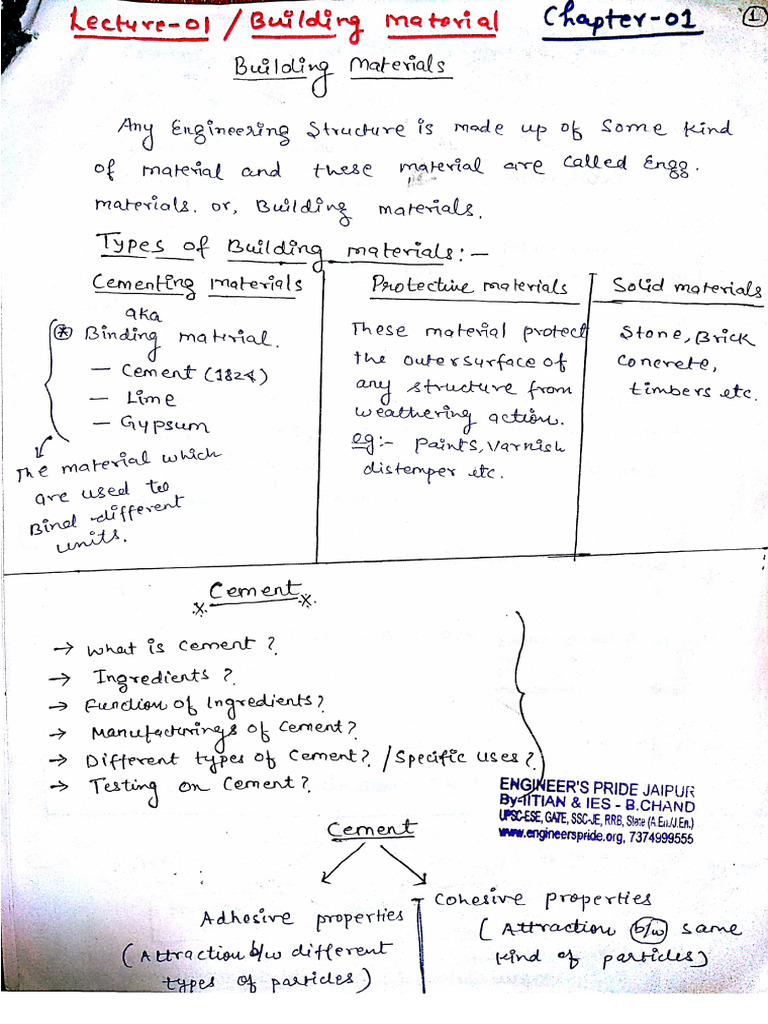 Lecture-01 / Building Material Chapter-01
1
Building Materials
Any Engineering Structure is made up of Some kind
of material and these material are called Engg.
materials. or, Building materials.
Types of Building materials:-
Cementing materials
aka
* Binding material.
- Cement (1824)
- Lime
- Gypsum
The material which
are used to
Bind different
units.
Protective materials
These material protect
the outersurface of
any structure from
weathering action.
eg:- paints, varnish
distemper etc.
Solid materials
Stone, Brick
Concrete,
timbers etc.
Cement
→ What is cement?
→ Ingredients?
→ Function of Ingredients?
→ Manufacturings of Cement?
→ Different types of Cement? /Specific uses?
→ Testing on Cement?
ENGINEER'S PRIDE JAIPUR
By-IITIAN & IES - B.CHAND
UPSC-ESE, GATE, SSC-JE, RRB, State (A.En./J.En.)
www.engineerspride.org, 7374999555
Cement
Adhesive properties
(Attraction b/w different
types of particles)
Cohesive properties
(Attraction b/w same
kind of particles)